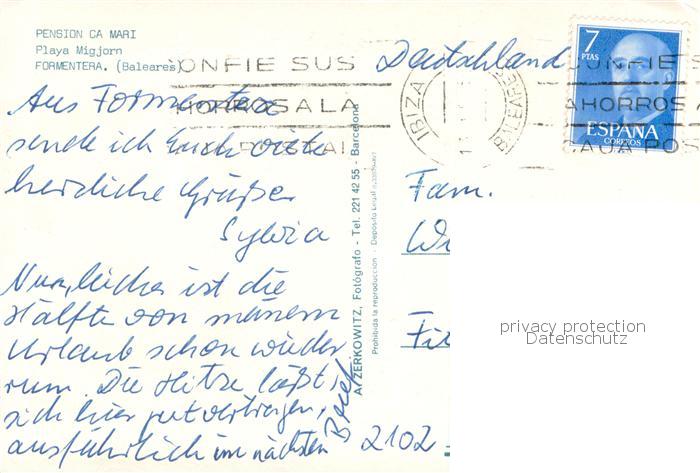 PENSION CA MARI
Playa Migjorn
FORMENTERA. (Baleares)
CONFIE SUS
AHORROS A LA
CAJA POSTAL
IBIZA
(BALEARES)
7
PTAS
ESPAÑA
CORREOS
ONFIE S
AHORROS
CAJA POS
Deutschland
Aus Formentera
sende ich Euch viele
herzliche Grüße
Sylvia
Nun, leider ist die
Hälfte von meinem
Urlaub schon wieder
rum. Die Hitze läßt
sich hier gut vertragen,
ausführlich im nächsten
Brief
A. ZERKOWITZ, Fotógrafo - Tel. 221 42 55 - Barcelona
Prohibida la reproducción - Depósito Legal
Fam.
Wi
Fi
2102
privacy protection
Datenschutz